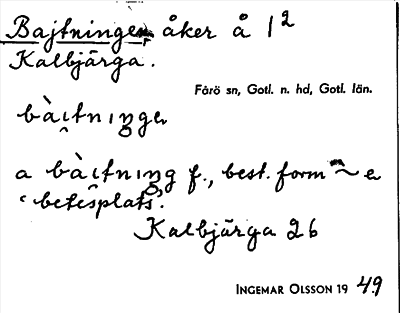 Bajtningen, åker å 1²
Kalbjärga.
Fårö sn, Gotl. n. hd, Gotl. län.
a f., best. form ~ e
‘betesplats’.
Kalbjärga 26
INGEMAR OLSSON 19 49